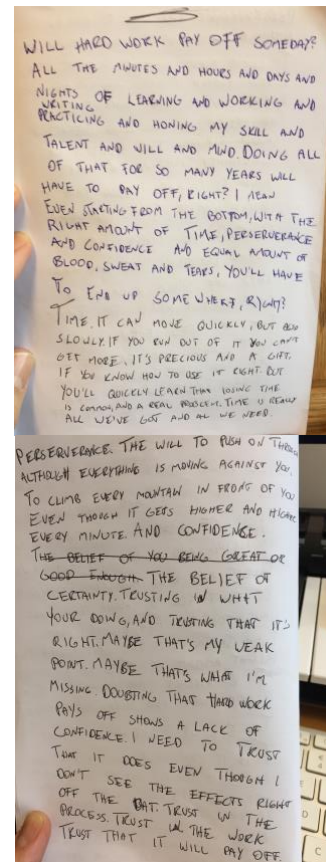 WILL HARD WORK PAY OFF SOMEDAY?
ALL THE MINUTES AND HOURS AND DAYS AND
NIGHTS OF LEARNING AND WORKING AND
WRITING
PRACTICING AND HONING MY SKILL AND
TALENT AND WILL AND MIND. DOING ALL
OF THAT FOR SO MANY YEARS WILL
HAVE TO PAY OFF, RIGHT? I MEAN
EVEN STARTING FROM THE BOTTOM, WITH THE
RIGHT AMOUNT OF TIME, PERSERVERANCE
AND CONFIDENCE AND EQUAL AMOUNT OF
BLOOD, SWEAT AND TEARS, YOU'LL HAVE
TO END UP SOMEWHERE, RIGHT?
TIME. IT CAN MOVE QUICKLY, BUT ALSO
SLOWLY. IF YOU RUN OUT OF IT YOU CAN'T
GET MORE. IT'S PRECIOUS AND A GIFT,
IF YOU KNOW HOW TO USE IT RIGHT. BUT
YOU'LL QUICKLY LEARN THAT LOSING TIME
IS COMMON, AND A REAL PROBLEM. TIME IS REALLY
ALL WE'VE GOT AND ALL WE NEED.
PERSERVERANCE. THE WILL TO PUSH ON THROUGH
ALTHOUGH EVERYTHING IS MOVING AGAINST YOU.
TO CLIMB EVERY MOUNTAIN IN FRONT OF YOU
EVEN THOUGH IT GETS HIGHER AND HIGHER
EVERY MINUTE. AND CONFIDENCE.
THE BELIEF OF YOU BEING GREAT OR
GOOD ENOUGH. THE BELIEF OF
CERTAINTY. TRUSTING IN WHAT
YOUR DOING, AND TRUSTING THAT IT'S
RIGHT. MAYBE THAT'S MY WEAK
POINT. MAYBE THAT'S WHAT I'M
MISSING. DOUBTING THAT HARD WORK
PAYS OFF SHOWS A LACK OF
CONFIDENCE. I NEED TO TRUST
THAT IT DOES EVEN THOUGH I
DON'T SEE THE EFFECTS RIGHT
OFF THE BAT. TRUST IN THE
PROCESS. TRUST IN THE WORK
TRUST THAT IT WILL PAY OFF.
C